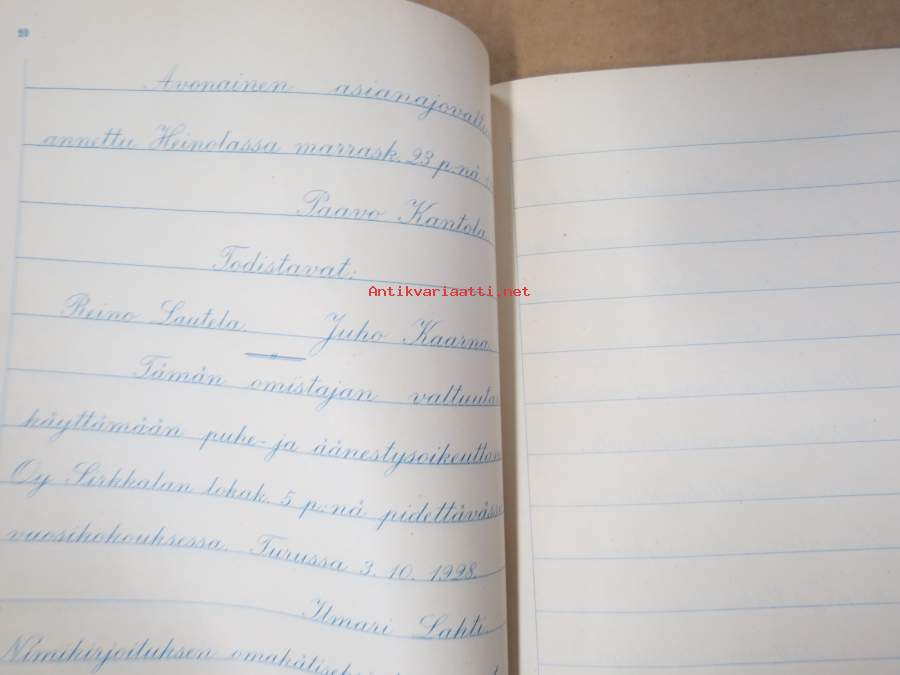 29
Avonainen asianajovalt
annettu Heinolassa marrask. 23 p:nä
Paavo Kantola
Todistavat:
Antikvariaatti.net
Reino Lautela Juho Kaarna
Tämän omistajan valtuuta
käyttämään puhe- ja äänestysoikeuttan
Oy Sirkkalan lokak. 5 p:nä pidettäväss
vuosikokouksessa. Turussa 3. 10. 1928.
Ilmari Lahti
Nimikirjoituksen